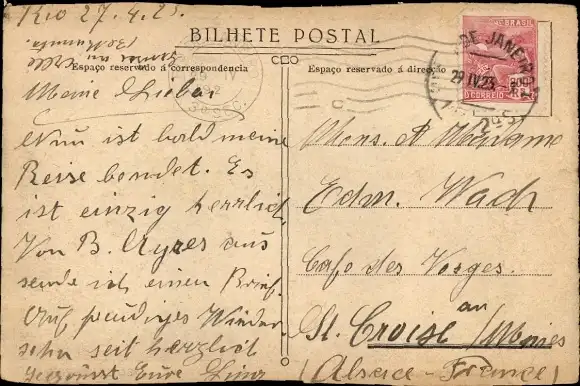 Rio 27.4.23.
BILHETE POSTAL
Espaço reservado á correspondencia
Espaço reservado á direcção
BRASIL
CORREIO
RIO DE JANEIRO
29 IV 23
Meine Lieben
Nun ist bald meine
Reise beendet. Es
ist einzig herrlich.
Von B. Ayres aus
sende ich einen Brief.
Auf freudiges Wieder
sehn seit herzlich
gegrüsst Eure
Mons. et Madame
Edm. Wach
Cafe des Vosges.
St. Croise au/Mines
(Alsace-France)